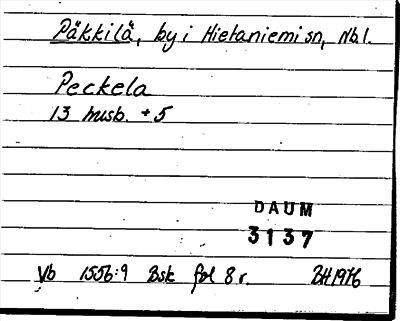 Päkkilä, by i Hietaniemi sn, Nb.l.
Peckela
13 husb. + 5
DAUM
3137
Vb 1556:9 Bsk fol 8 r. BH 1976